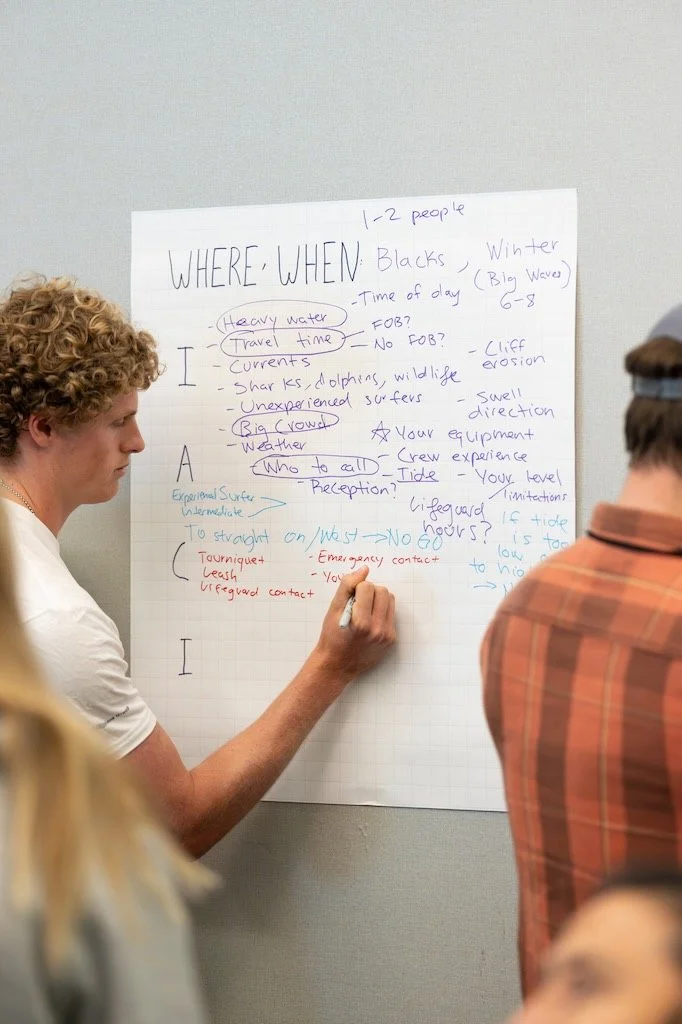 1-2 people
WHERE, WHEN: Blacks, Winter
(Big Waves)
6-8
- Time of day
- Heavy water
- Travel time - FOB?
- No FOB?
I
- Currents
- Sharks, dolphins, wildlife
- Unexperienced surfers
- Big Crowd
- Weather
- Who to call
- Reception?
- Cliff
erosion
- Swell
direction
☆ Your equipment
- Crew experience
- Tide
- Your level
limitations
Lifeguard
hours?
A
Experienced Surfer
Intermediate
To straight on/West → NO GO
If tide
is too
low
to hig
→
C
Tourniquet
Leash
Lifeguard contact
- Emergency contact
- You
I